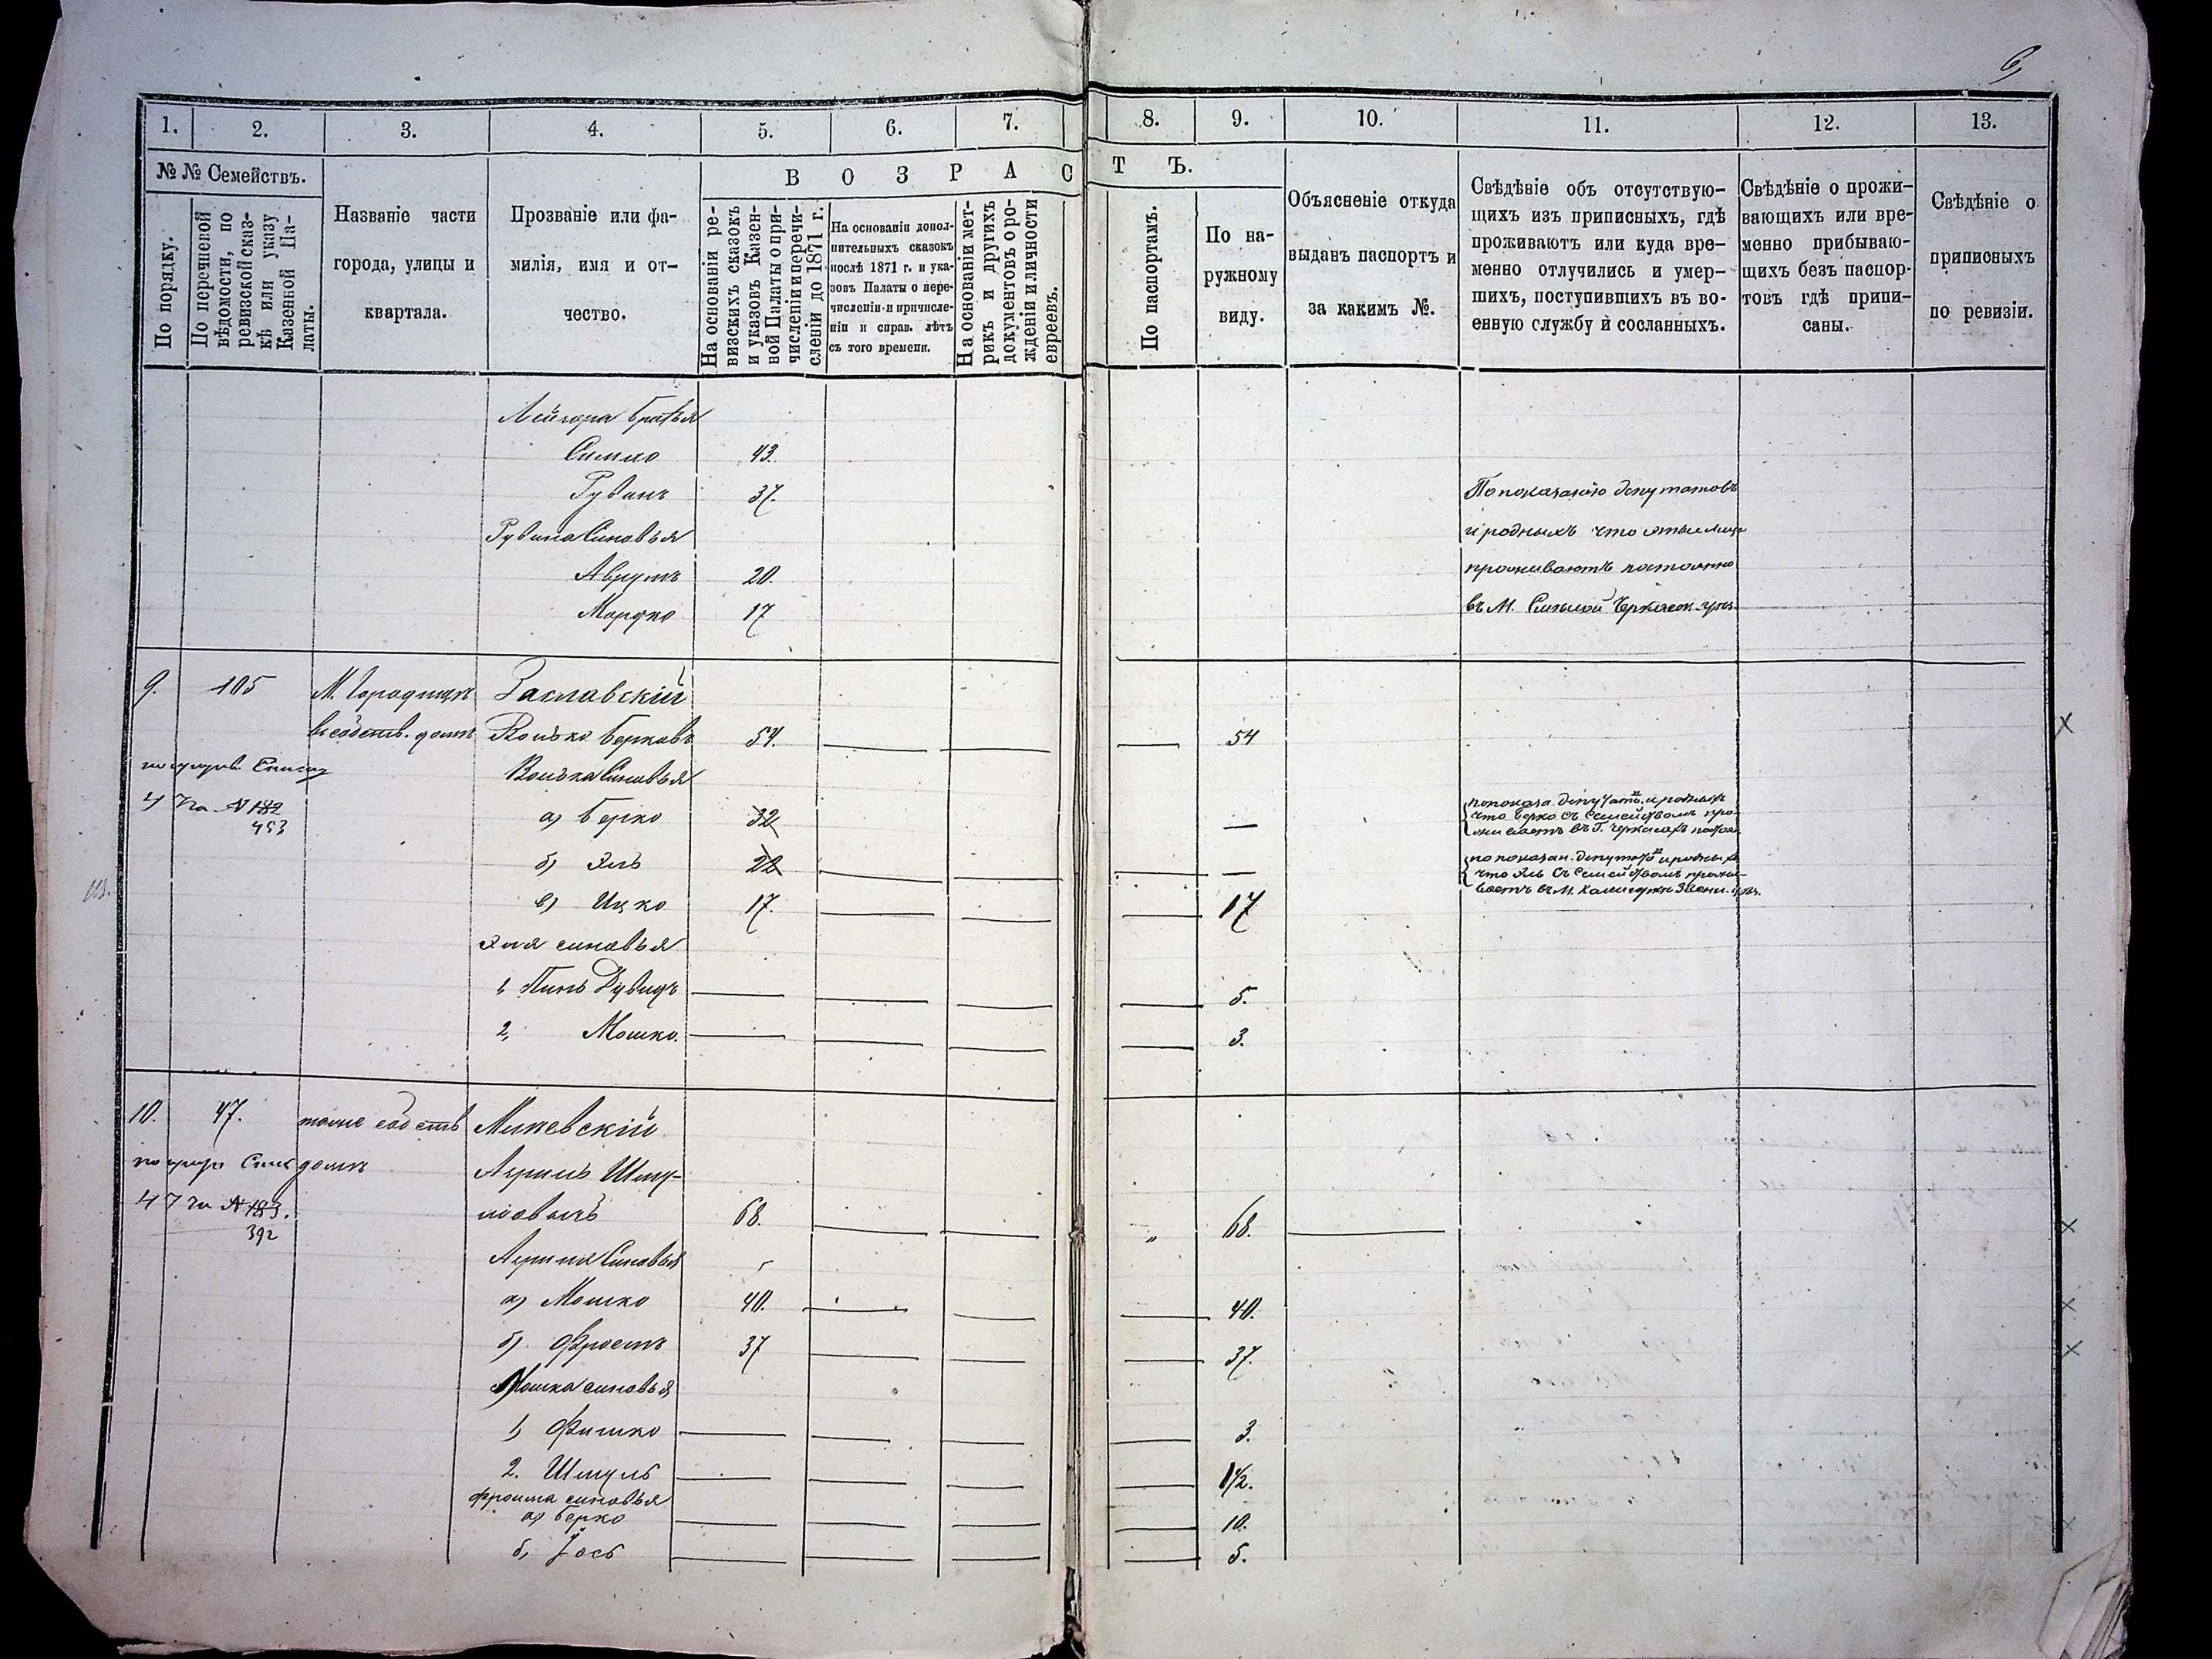 6
1. 2. 3. 4. 5. 6. 7. 8. 9. 10. 11. 12. 13.
№ № Семействъ.
По порядку.
По перечневой
вѣдомости, по
ревизской сказ-
кѣ или указу
Казенной Па-
латы.
Названіе части
города, улицы и
квартала.
Прозваніе или фа-
милія, имя и от-
чество.
В О З Р А С Т Ъ.
На основаніи ре-
визскихъ сказокъ
и указовъ Казен-
ной Палаты о при-
численіи и перечи-
сленіи до 1871 г.
На основаніи допол-
нительныхъ сказокъ
послѣ 1871 г. и ука-
зовъ Палаты о пере-
численіи и причисле-
ніи и справ. лѣтъ
съ того времени.
На основаніи мет-
рикъ и другихъ
документовъ о ро-
жденіи и личности
евреевъ.
По паспортамъ.
По на-
ружному
виду.
Объясненіе откуда
выданъ паспортъ и
за какимъ №.
Свѣдѣніе объ отсутствую-
щихъ изъ приписныхъ, гдѣ
проживаютъ или куда вре-
менно отлучились и умер-
шихъ, поступившихъ въ во-
енную службу и сосланныхъ.
Свѣдѣніе о прожи-
вающихъ или вре-
менно прибываю-
щихъ безъ паспор-
товъ гдѣ припи-
саны.
Свѣдѣніе о
приписныхъ
по ревизіи.
братья
Симко 43.
Рувинъ 37. По показанію депутатовъ
Рувина Синовья и родныхъ что этые лица
Аврумъ 20. проживаютъ постоянно
Мордко 17 въ М. Смелой Черкаск. уез.
9. 105 М. Городищѣ Заславскій
въ собств. домѣ Волько Берковъ 54. 54
Волька Синовья
4 7 на № 182
453
а) Берко 32 —
по показа. депутат. и родныхъ
что Берко съ Семействомъ про-
живаетъ въ Г. Черкасахъ
б) Эль 22 —
по показан. депутат. и родныхъ
что Эль съ Семействомъ прожи-
ваетъ въ М. Звени. уез.
в) Ицко 17. 17
Эля синовья
1, Пинь Дувидъ 5.
2, Мошко. 3.
10. 47. тоже собств Микевскій
домѣ
Шму-
левичъ 68. „ 68.
4 7 на № 183.
392
Синовья
а) Мошко 40. 40.
б) Фроемъ 37 37.
Мошка синовья
1, Фишко 3.
2. Шмуль 1½.
Фроима синовья
а) Берко 10.
б, Іось 5.